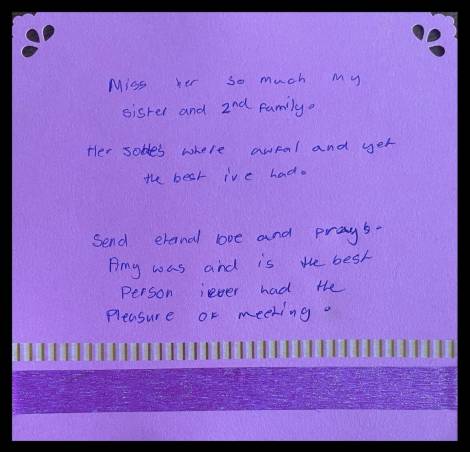 Miss her so much my
sister and 2nd Family.
Her jokes where awful and yet
the best ive had.
Send eternal love and prays.
Amy was and is the best
Person ever had the
Pleasure of meeting.